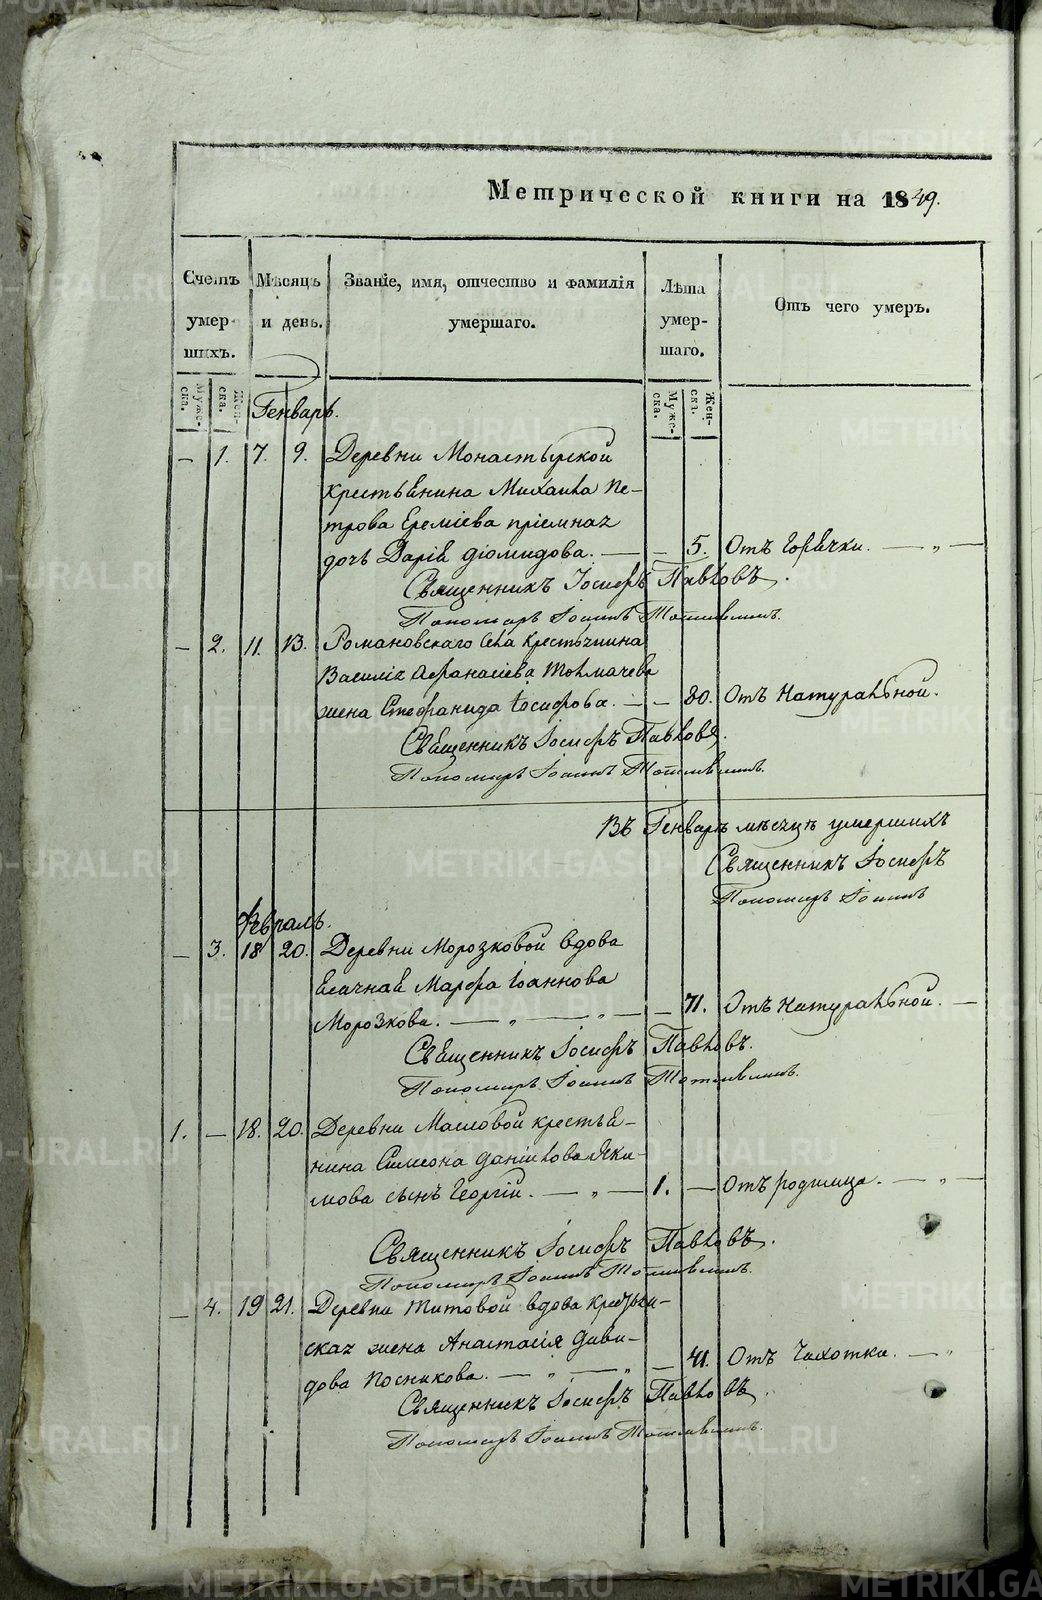 Метрической книги на 1849.
Счетъ умер- шихъ.
Мѣсяцъ и день.
Званіе, имя, отчество и фамилія умершаго.
Лѣта умер- шаго.
Отъ чего умеръ.
Муже- ска.
Жен- ска.
Муже- ска.
Жен- ска.
Генварь.
— 1. 7. 9. Деревни Монастырской
крестьянина Михаила Пе-
трова Еремѣева пріемная
дочь Дарія Діомидова. — — 5. Отъ горячки. — „ —
Священникъ Іосифъ Павловъ.
Пономарь Іоаннъ
— 2. 11. 13. Романовскаго села крестьянина
Василія Афанасіева Толмачева
жена Стефанида Іосифова. — — 80. Отъ натуральной.
Священникъ Іосифъ Павловъ.
Пономарь Іоаннъ
Въ Генварѣ мѣсяцѣ умершихъ
Священникъ Іосифъ
Пономарь Іоаннъ
Февраль.
— 3. 18 20. Деревни Морозковой вдова
Марфа Іоаннова
Морозкова. — „ — „ — — 71. Отъ натуральной. —
Священникъ Іосифъ Павловъ.
Пономарь Іоаннъ
1. — 18. 20. Деревни Масловой крестья-
нина Симеона Данилова Яки-
мова сынъ Георгій. — „ — 1. — Отъ родимца. — „ —
Священникъ Іосифъ Павловъ.
Пономарь Іоаннъ
— 4. 19 21. Деревни Титовой вдова крестьян-
ская жена Анастасія Дави-
дова Посникова. — „ — „ — 41. Отъ чахотки. — „
Священникъ Іосифъ Павловъ.
Пономарь Іоаннъ
METRIKI.GASO-URAL.RU